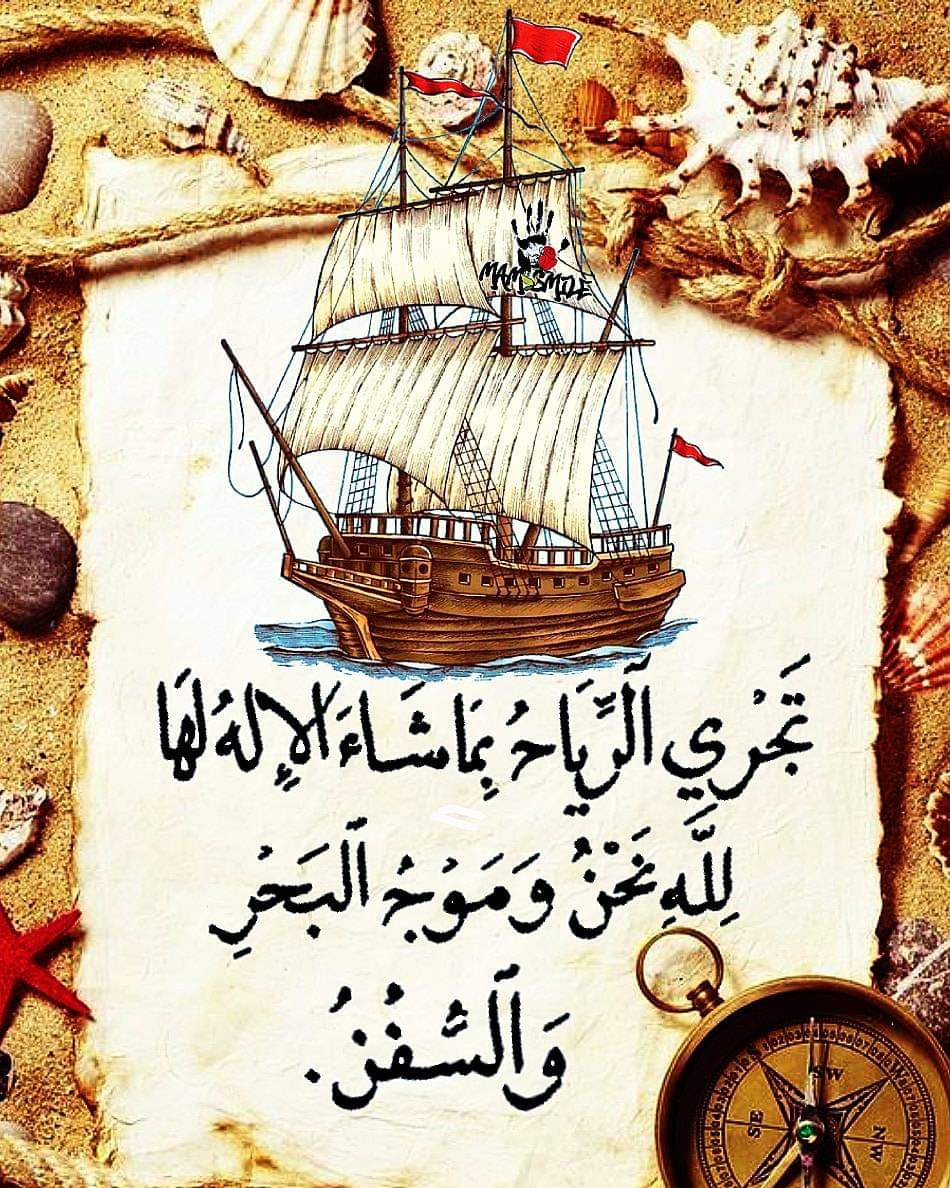 MAM SMILE
تَجْرِي ٱلرِّيَاحُ بِمَا شَاءَ الإِلهُ لَهَا
لِلَّهِ نَحْنُ وَمَوْجُ ٱلبَحْرِ
وَٱلسُّفُنُ.
SW
SE
NW